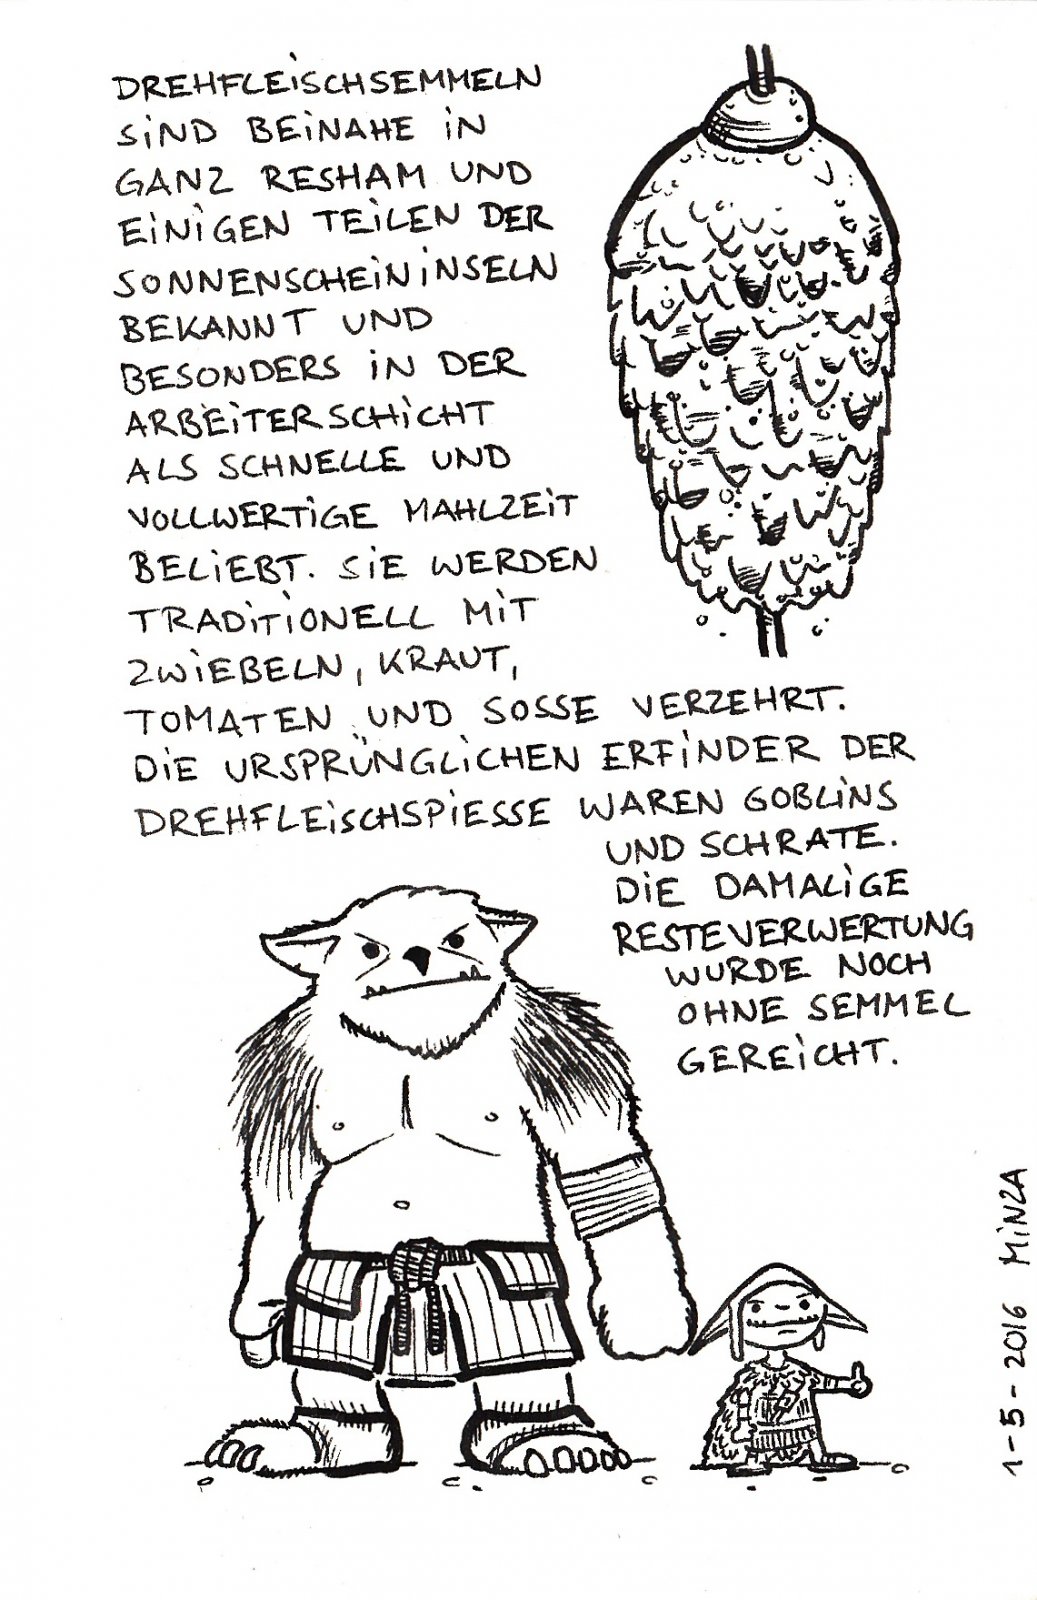 DREHFLEISCHSEMMELN
SIND BEINAHE IN
GANZ RESHAM UND
EINIGEN TEILEN DER
SONNENSCHEININSELN
BEKANNT UND
BESONDERS IN DER
ARBEITERSCHICHT
ALS SCHNELLE UND
VOLLWERTIGE MAHLZEIT
BELIEBT. SIE WERDEN
TRADITIONELL MIT
ZWIEBELN, KRAUT,
TOMATEN UND SOSSE VERZEHRT.
DIE URSPRÜNGLICHEN ERFINDER DER
DREHFLEISCHSPIESSE WAREN GOBLINS
UND SCHRATE.
DIE DAMALIGE
RESTEVERWERTUNG
WURDE NOCH
OHNE SEMMEL
GEREICHT.
1-5-2016 MINZA